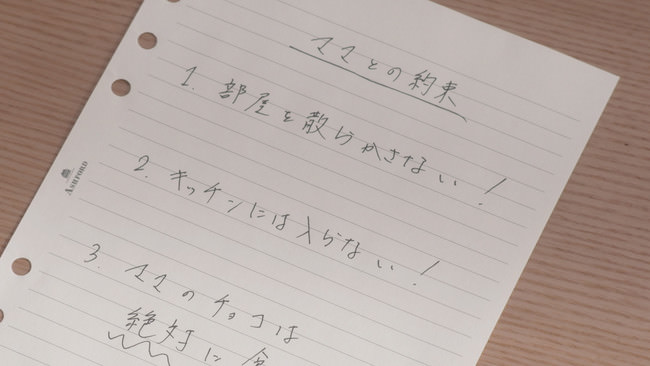 ママとの約束
1. 部屋を散らかさない!
2. キッチンには入らない!
3. ママのチョコは
絶対に食
ASHFORD